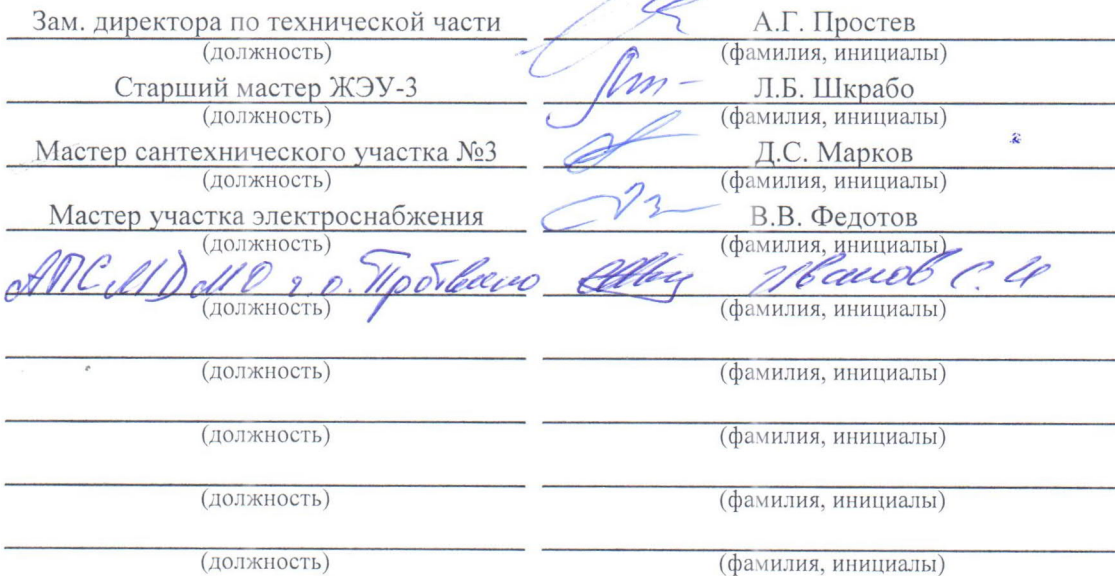 Зам. директора по технической части А.Г. Простев
(должность) (фамилия, инициалы)
Старший мастер ЖЭУ-3 Л.Б. Шкрабо
(должность) (фамилия, инициалы)
Мастер сантехнического участка №3 Д.С. Марков
(должность) (фамилия, инициалы)
Мастер участка электроснабжения В.В. Федотов
(должность) (фамилия, инициалы)
АПС МД МО г.о. Протвино Иванов С.И
(должность) (фамилия, инициалы)
(должность) (фамилия, инициалы)
(должность) (фамилия, инициалы)
(должность) (фамилия, инициалы)
(должность) (фамилия, инициалы)